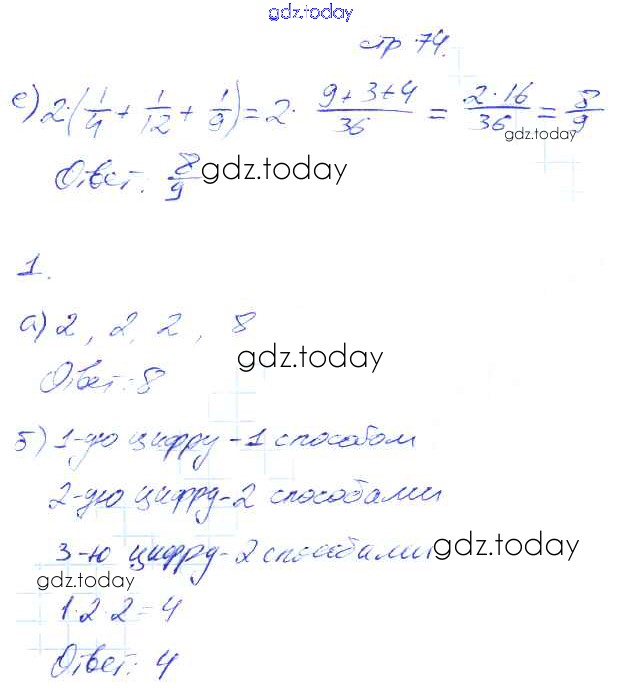 gdz.today
стр 74.
е) 2·(1/4 + 1/12 + 1/9) = 2· (9+3+4)/36 = (2·16)/36 = 8/9
gdz.today
Ответ: 8/9 gdz.today
1.
а) 2, 2, 2, 8
gdz.today
Ответ: 8
б) 1-ую цифру - 1 способом
2-ую цифру - 2 способами
3-ю цифру - 2 способами gdz.today
gdz.today
1·2·2=4
Ответ: 4